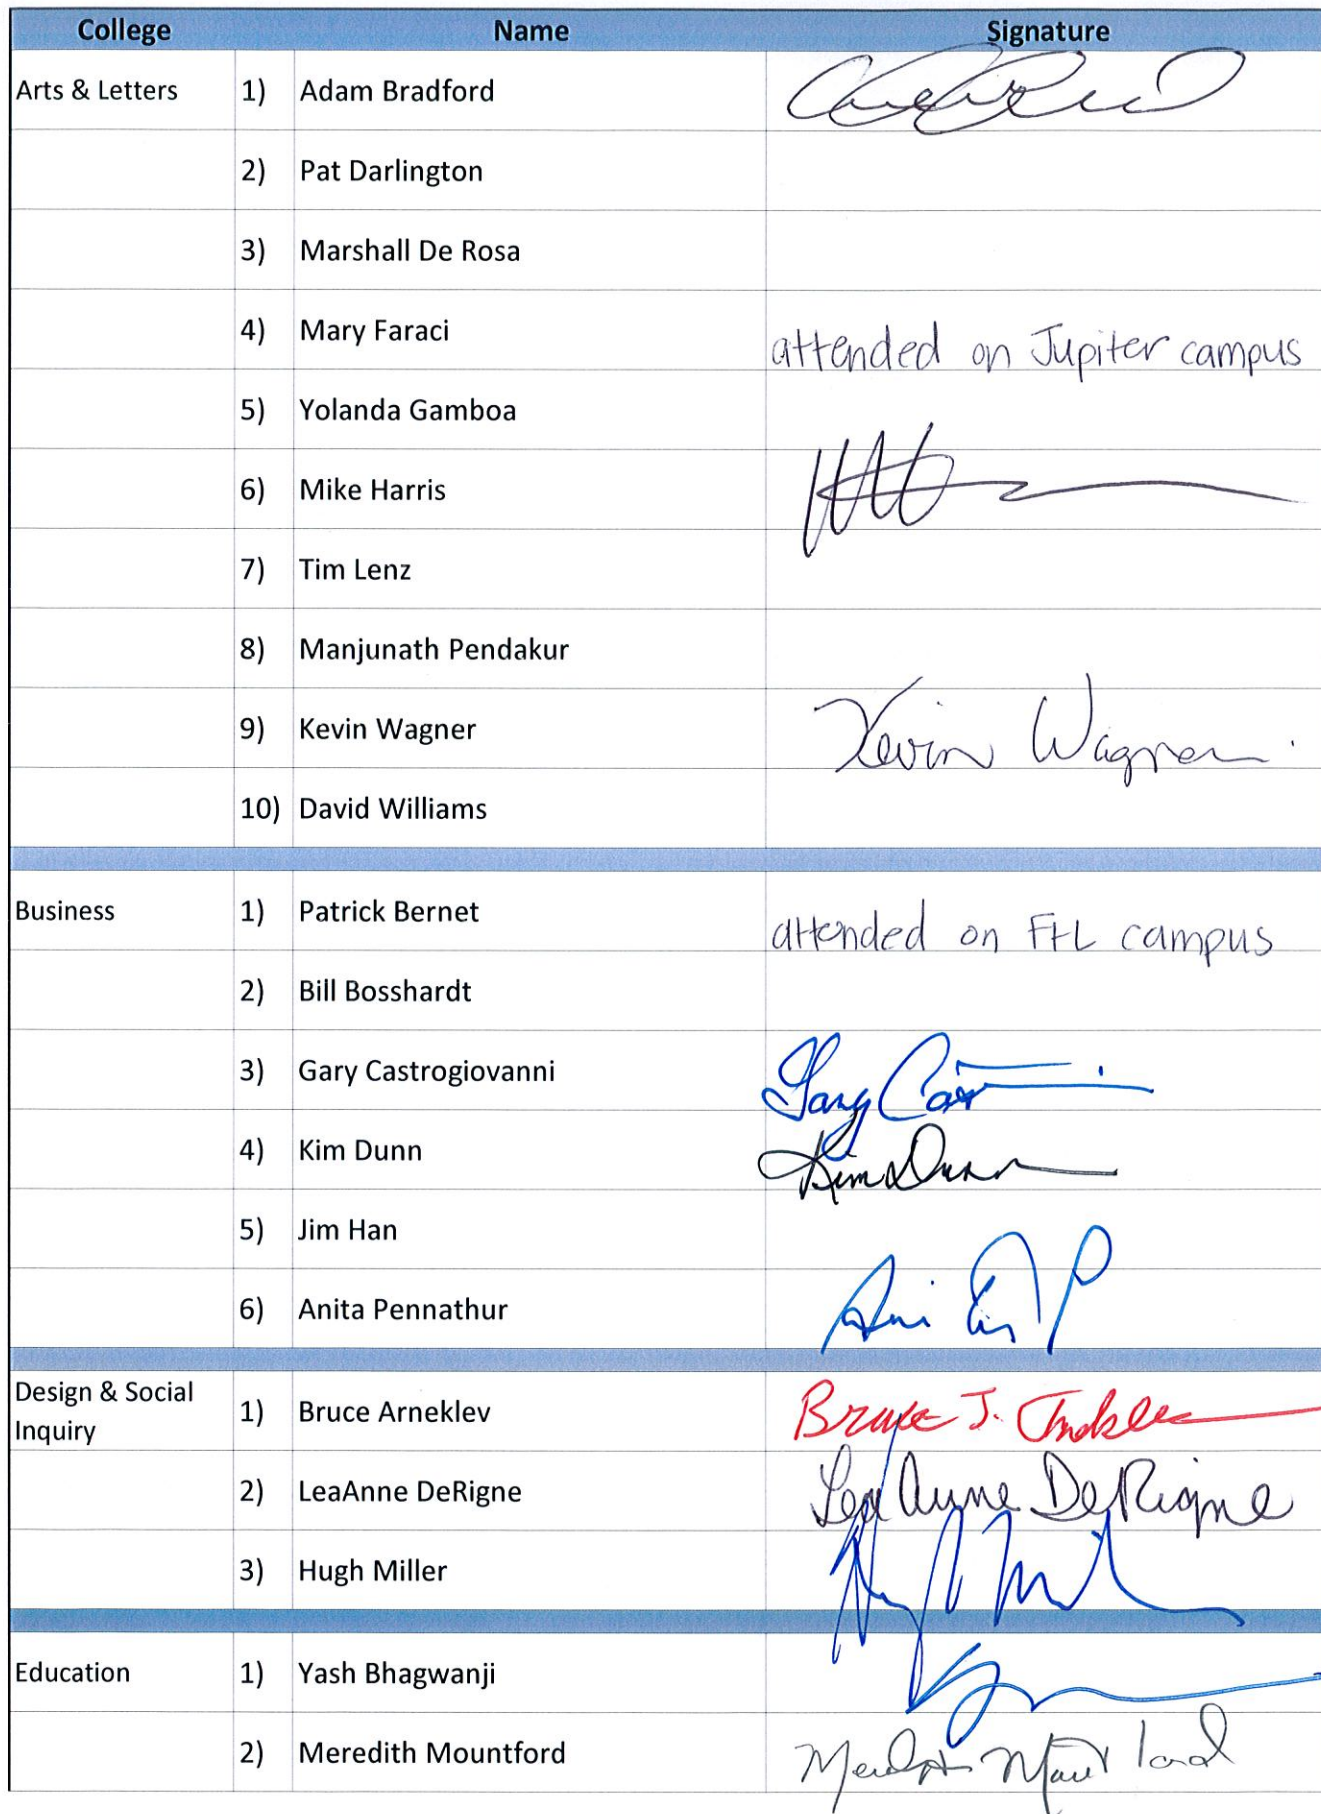 College Name Signature
Arts & Letters 1) Adam Bradford
2) Pat Darlington
3) Marshall De Rosa
4) Mary Faraci attended on Jupiter campus
5) Yolanda Gamboa
6) Mike Harris
7) Tim Lenz
8) Manjunath Pendakur
9) Kevin Wagner Kevin Wagner
10) David Williams
Business 1) Patrick Bernet attended on FtL campus
2) Bill Bosshardt
3) Gary Castrogiovanni Gary
4) Kim Dunn Kim Dunn
5) Jim Han
6) Anita Pennathur
Design & Social
Inquiry
1) Bruce Arneklev Bruce J.
2) LeaAnne DeRigne LeaAnne DeRigne
3) Hugh Miller
Education 1) Yash Bhagwanji
2) Meredith Mountford